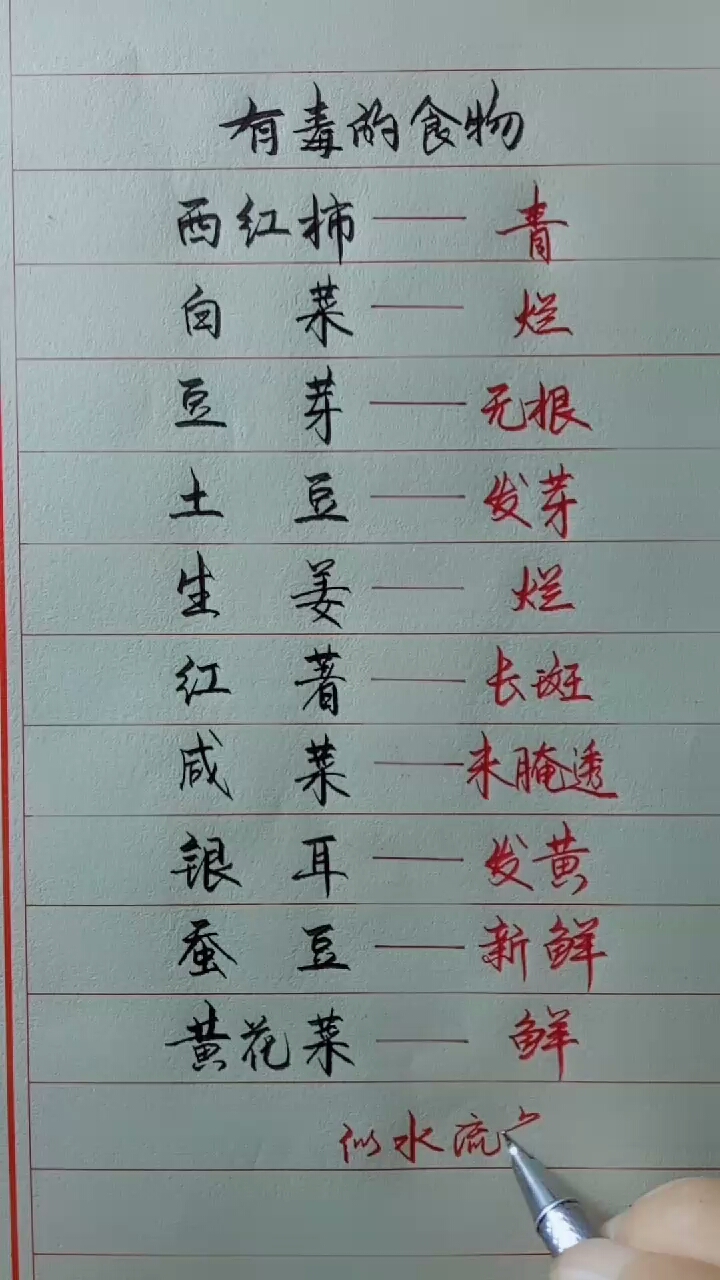 有毒的食物
西红柿——青
白菜——烂
豆芽——无根
土豆——发芽
生姜——烂
红薯——长斑
咸菜——未腌透
银耳——发黄
蚕豆——新鲜
黄花菜——鲜
似水流